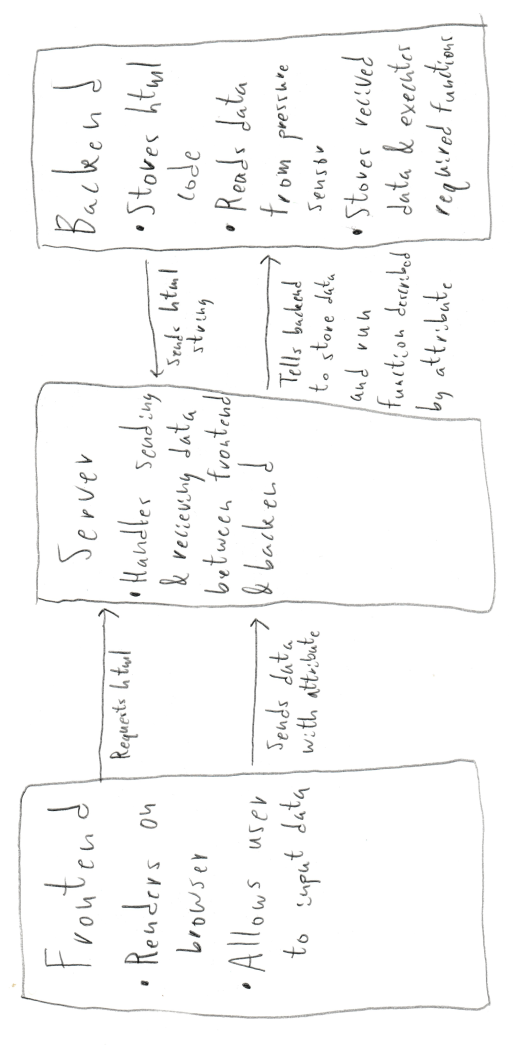 Frontend
• Renders on
browser
• Allows user
to input data
Requests html
Sends data
with attribute
Server
• Handles sending
& recieving data
between frontend
& backend
Sends html
string
Tells backend
to store data
and run
function described
by attribute
Backend
• Stores html
code
• Reads data
from pressure
sensor
• Stores recived
data & executes
required functions